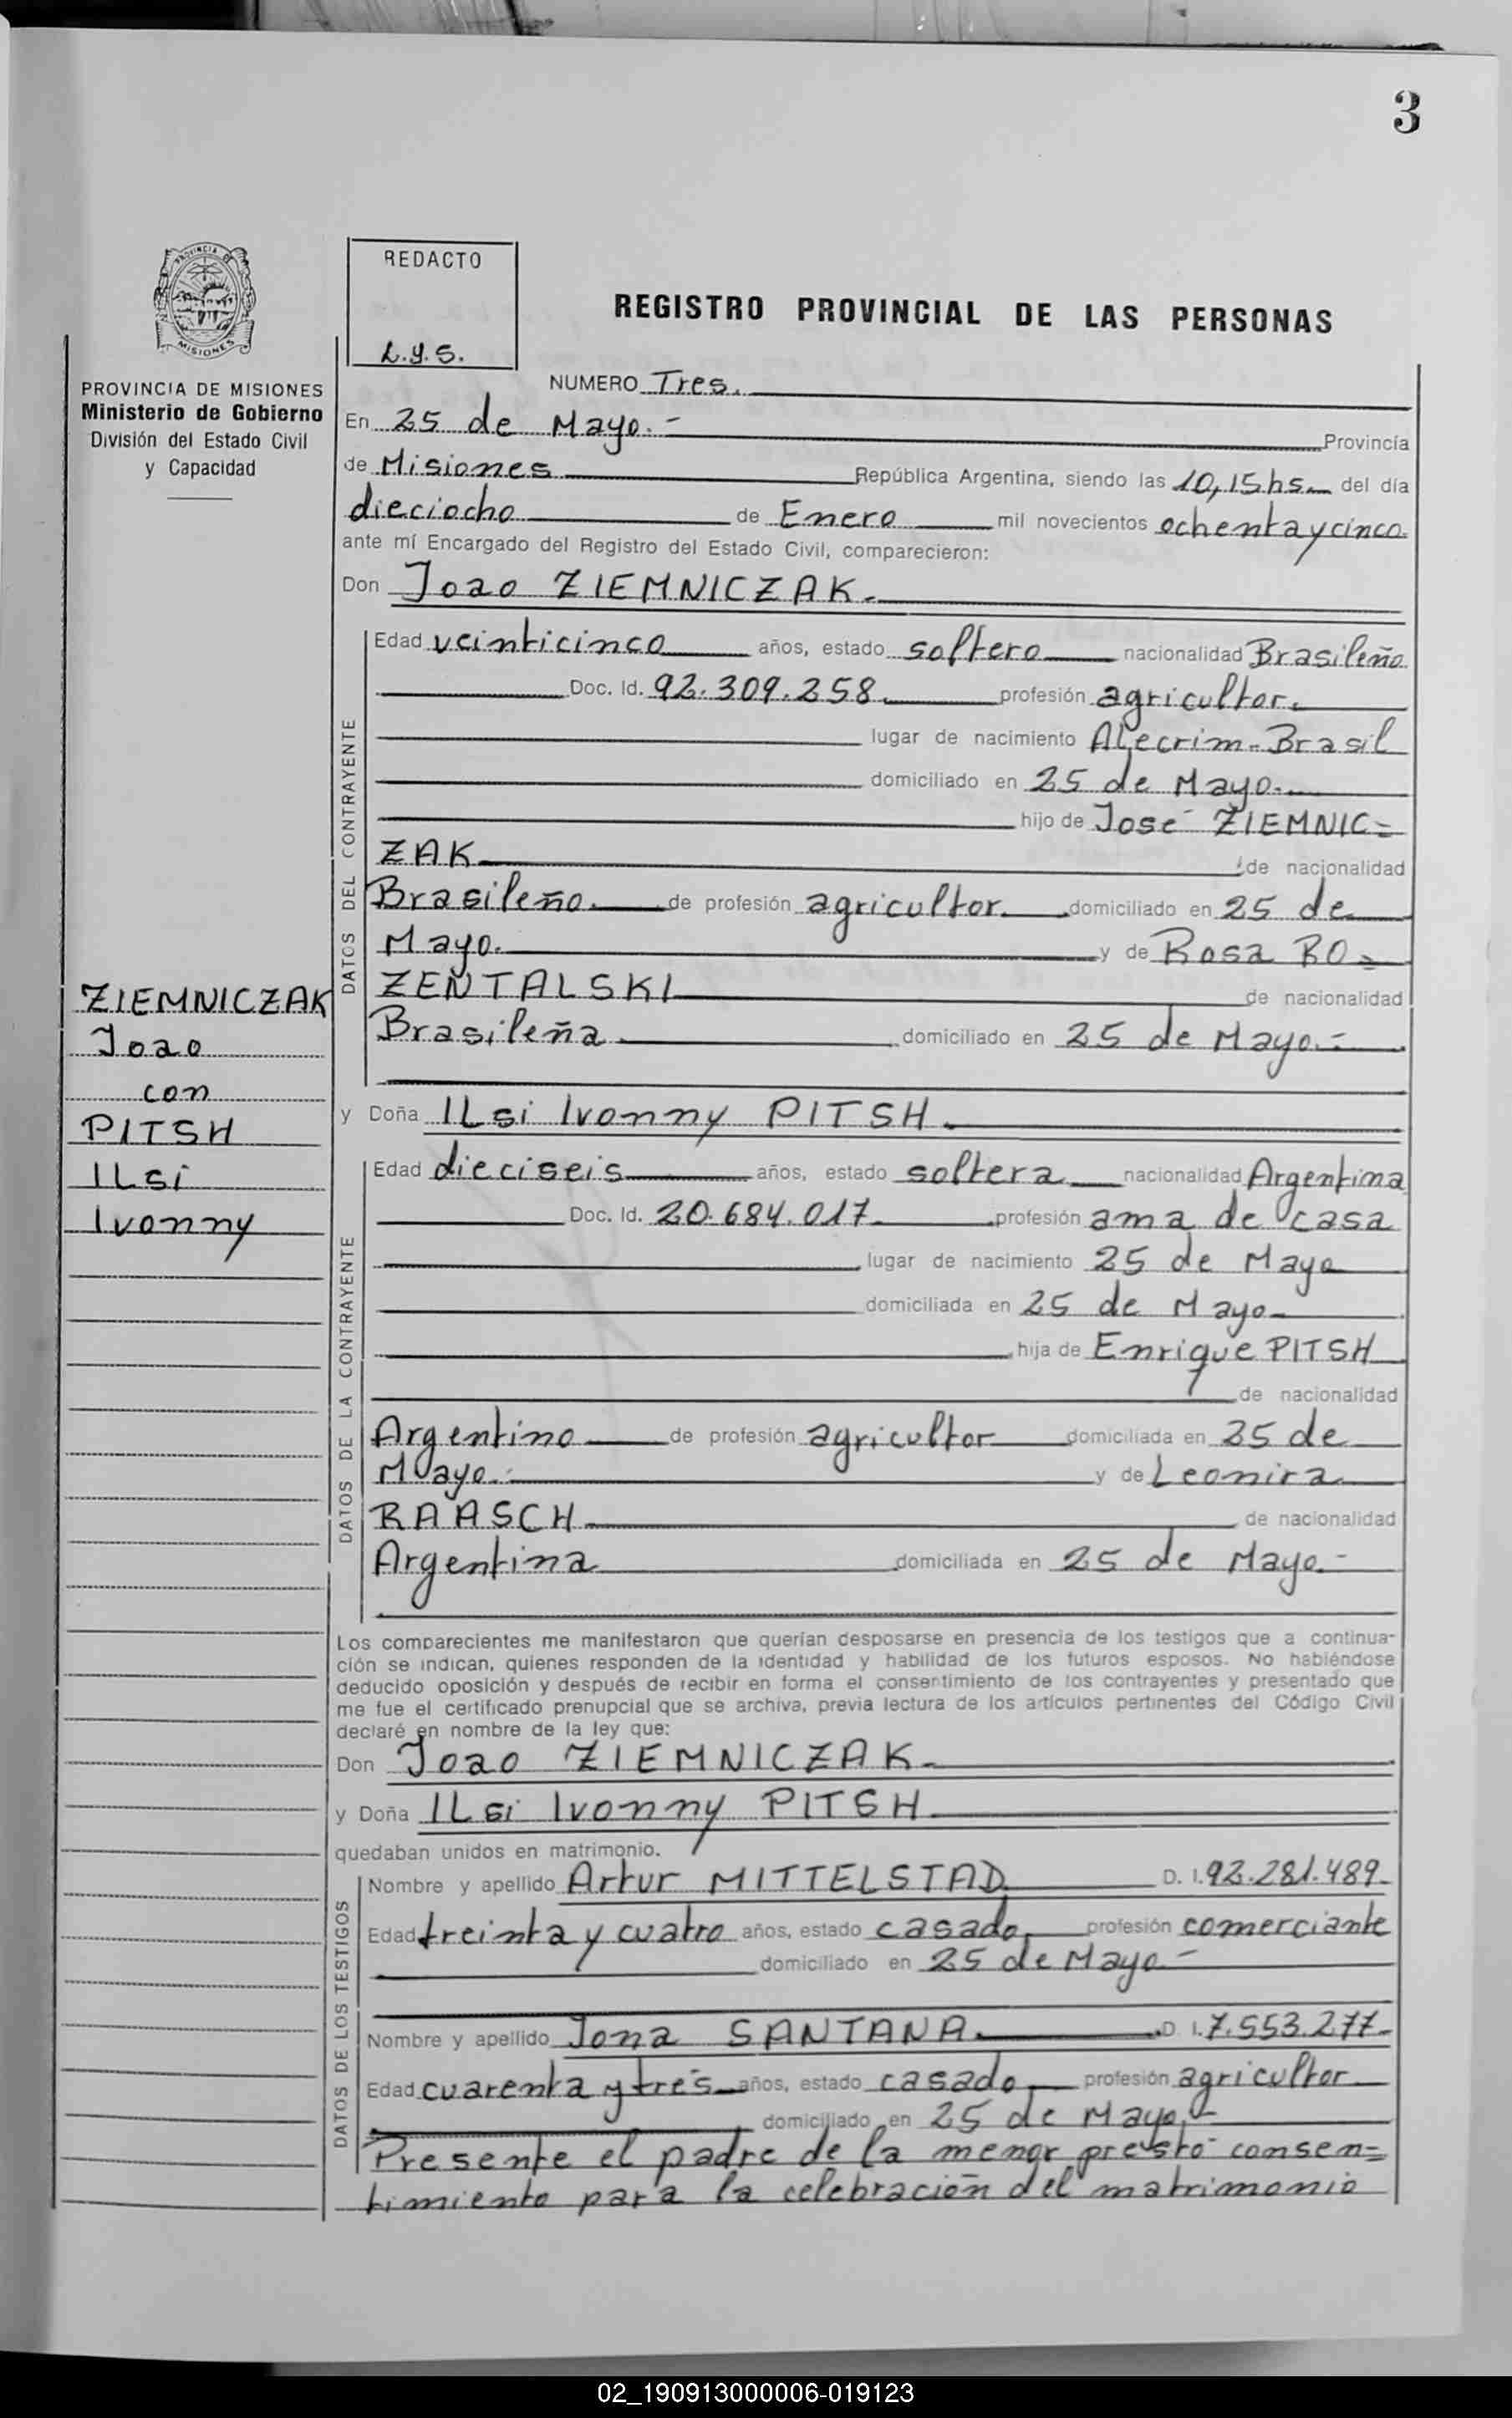 3
REDACTO
L.y.S.
REGISTRO PROVINCIAL DE LAS PERSONAS
MISIONES
PROVINCIA DE MISIONES
Ministerio de Gobierno
División del Estado Civil
y Capacidad
NUMERO Tres.
En 25 de Mayo.- Provincia
de Misiones República Argentina, siendo las 10,15 hs. del día
dieciocho de Enero mil novecientos ochenta y cinco.
ante mí Encargado del Registro del Estado Civil, comparecieron:
Don Joao ZIEMNICZAK.
DATOS DEL CONTRAYENTE
Edad veinticinco años, estado soltero nacionalidad Brasileño
Doc. Id. 92.309.258 profesión agricultor.
lugar de nacimiento Alecrim-Brasil
domiciliado en 25 de Mayo.
hijo de José ZIEMNIC=
ZAK de nacionalidad
Brasileño. de profesión agricultor. domiciliado en 25 de
Mayo. y de Rosa RO=
ZENTALSKI de nacionalidad
Brasileña domiciliado en 25 de Mayo.-
ZIEMNICZAK
Joao
con
PITSH
ILsi
Ivonny
y Doña ILsi Ivonny PITSH.
DATOS DE LA CONTRAYENTE
Edad dieciseis años, estado soltera nacionalidad Argentina
Doc. Id. 20.684.017 profesión ama de casa
lugar de nacimiento 25 de Mayo
domiciliada en 25 de Mayo
hija de Enrique PITSH
de nacionalidad
Argentino de profesión agricultor domiciliada en 25 de
Mayo.- y de Leonira
RAASCH de nacionalidad
Argentina domiciliada en 25 de Mayo.-
Los comparecientes me manifestaron que querían desposarse en presencia de los testigos que a continua-
ción se indican, quienes responden de la identidad y habilidad de los futuros esposos. No habiéndose
deducido oposición y después de recibir en forma el consentimiento de los contrayentes y presentado que
me fue el certificado prenupcial que se archiva, previa lectura de los artículos pertinentes del Código Civil
declaré en nombre de la ley que:
Don Joao ZIEMNICZAK.
y Doña ILsi Ivonny PITSH
quedaban unidos en matrimonio.
DATOS DE LOS TESTIGOS
Nombre y apellido Artur MITTELSTAD D. I. 92.281.489.
Edad treinta y cuatro años, estado casado profesión comerciante
domiciliado en 25 de Mayo.-
Nombre y apellido Jona SANTANA. D. I. 7.553.277.
Edad cuarenta y tres años, estado casado profesión agricultor
domiciliado en 25 de Mayo.-
Presente el padre de la menor prestó consen=
timiento para la celebración del matrimonio
02_190913000006-019123